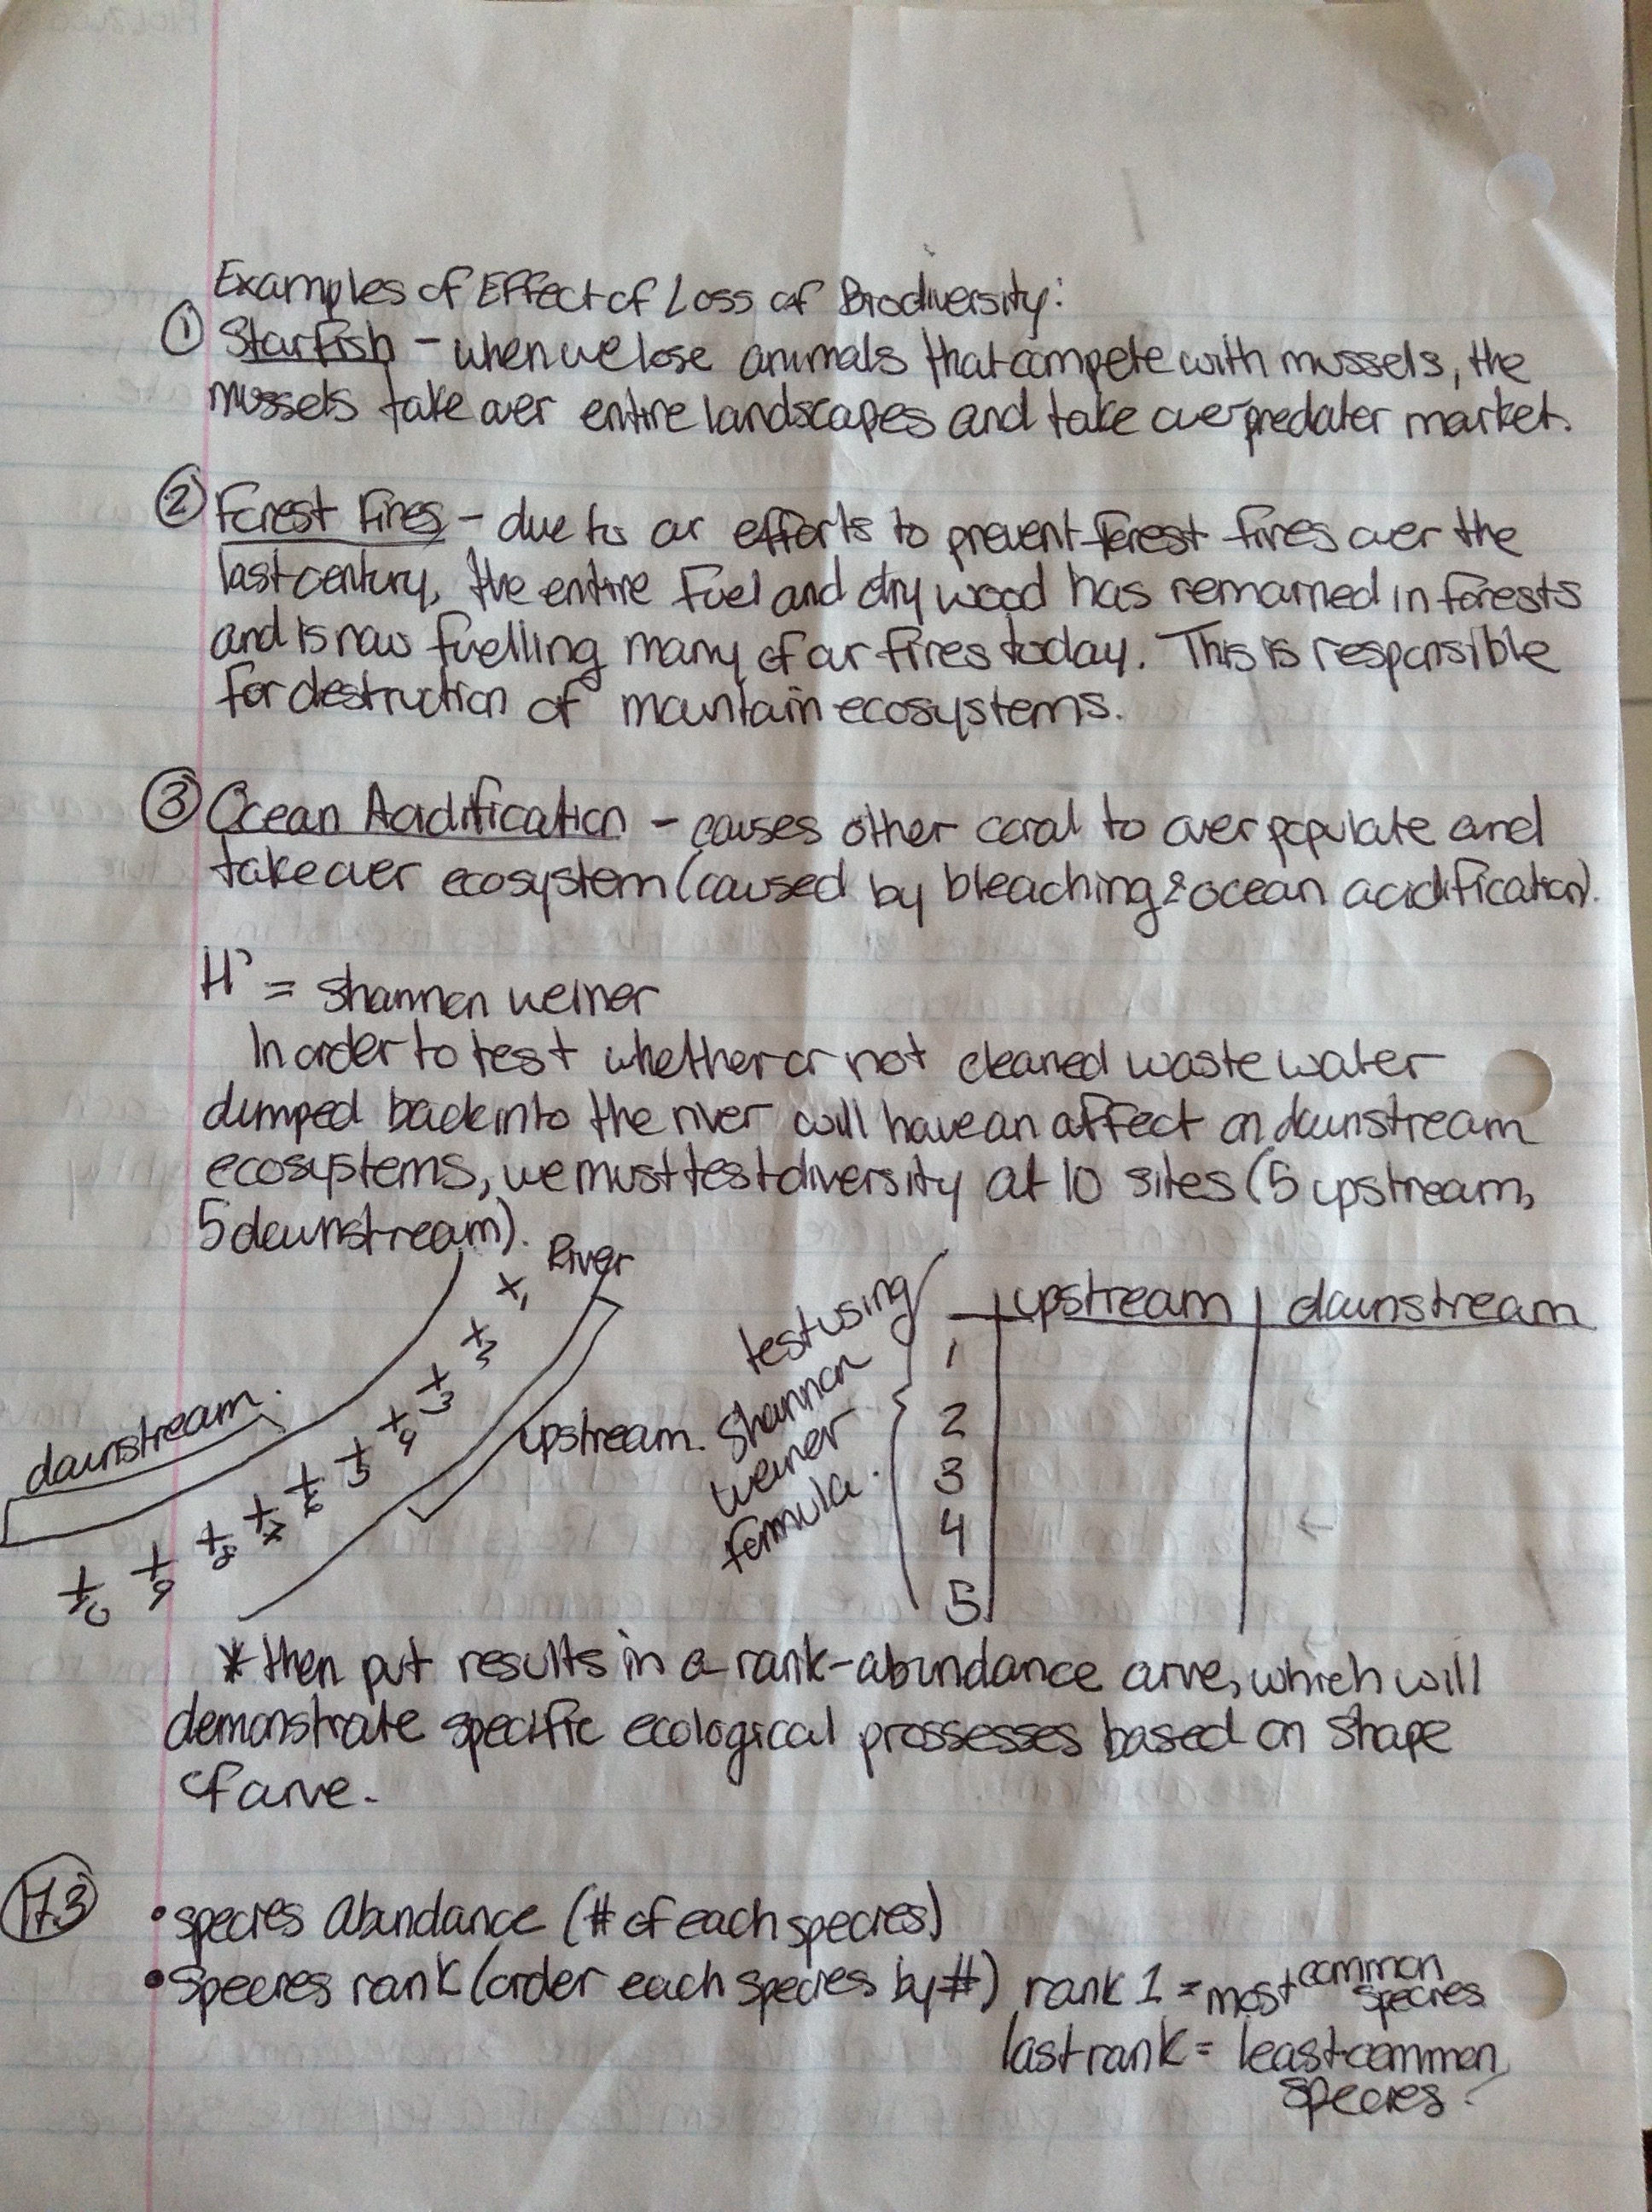 Examples of Effect of Loss of Biodiversity:
① Starfish - when we lose animals that compete with mussels, the
mussels take over entire landscapes and take over predater market.
② Forest Fires - due to our efforts to prevent forest fires over the
last century, the entire fuel and dry wood has remained in forests
and is now fuelling many of our fires today. This is responsible
for destruction of mountain ecosystems.
③ Ocean Acidification - causes other coral to over populate and
take over ecosystem (caused by bleaching & ocean acidification).
H' = Shannon Weiner
In order to test whether or not cleaned waste water
dumped back into the river will have an affect on downstream
ecosystems, we must test diversity at 10 sites (5 upstream,
5 downstream).
River
x1
x2
x3
x4
x5
x6
x7
x8
x9
x10
downstream.
upstream.
test using
Shannon
Weiner
formula.
upstream | downstream
1
2
3
4
5
* then put results in a rank-abundance curve, which will
demonstrate specific ecological prossesses based on shape
of curve.
17.3
• species abundance (# of each species)
• species rank (order each species by #) rank 1 = most common species
last rank = least common
species